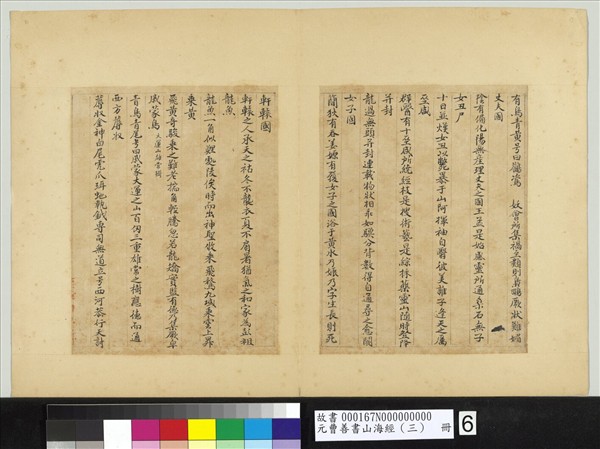 有鳥青黃号曰鶬鸞 妖會所集禍至類別 厥狀難媚
丈夫國
陰有偏化陽無產理丈夫之國王孟是始感靈所通桑石無子
女丑尸
十日並熯女丑以斃暴于山阿揮袖自翳彼美誰子逢天之厲
巫咸
群有十巫咸所統經技是搜術藝是綜採藥靈山隨時登降
并封
龍過無頭并封連載物狀相乖如驥分背數得自通尋之愈閡
女子國
簡狄有吞姜嫄有履女子之國浴于黃水乃娠乃字生男則死
軒轅國
軒轅之人承天之祜冬不襲衣夏不扇暑猶氣之和家為彭祖
龍魚
龍魚一角似鯉處陵俟時而出神聖攸乘飛騖九域乘雲上昇
乘黃
飛黃奇駿乘之難老揣角輕騰忽若龍矯實鑒有德乃集厥皁
滅蒙鳥 大運山雄常樹
青鳥青尾号曰滅蒙大運之山百仞三重雄常之樹應德而通
西方蓐收
蓐收金神白尾虎爪珥虵執鉞專司無道立号西河恭行天討
故書 000167N000000000
元曹善書山海經(三) 冊 6